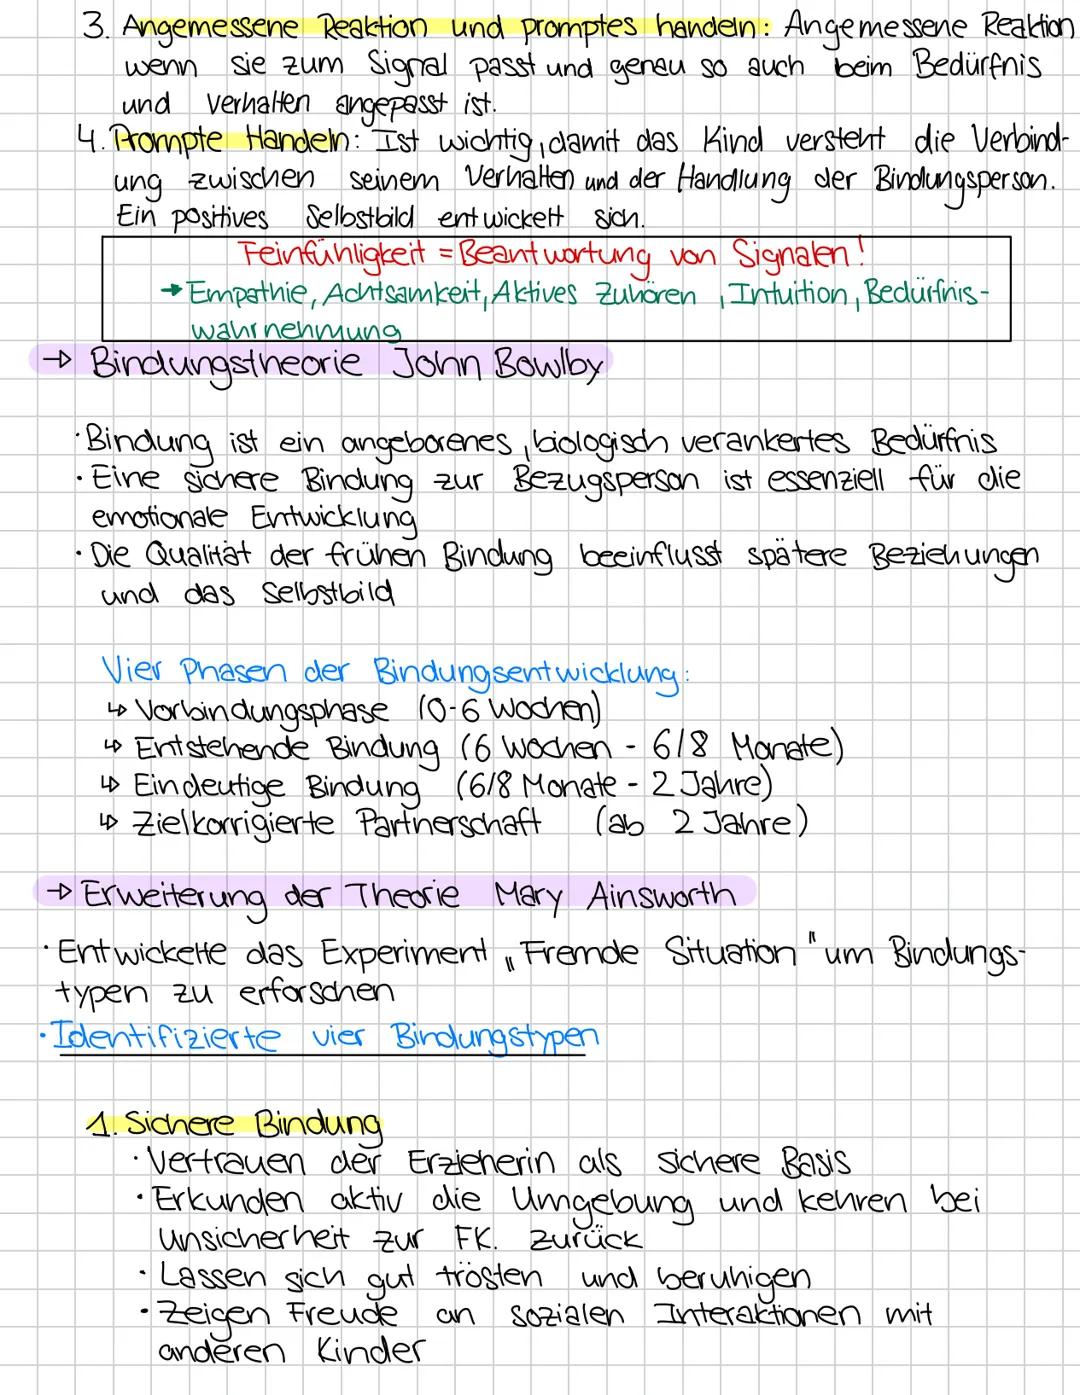 3. Angemessene Reaktion und promptes handeln: Angemessene Reaktion
wenn sie zum Signal passt und genau so auch beim Bedürfnis
und Verhalten angepasst ist.
4. Prompte Handeln: Ist wichtig, damit das Kind versteht die Verbind-
ung zwischen seinem Verhalten und der Handlung der Bindungsperson.
Ein positives Selbstbild entwickelt sich.
Feinfühligkeit = Beantwortung von Signalen!
→ Empathie, Achtsamkeit, Aktives Zuhören, Intuition, Bedürfnis-
wahrnehmung
→ Bindungstheorie John Bowlby
· Bindung ist ein angeborenes, biologisch verankertes Bedürfnis
· Eine sichere Bindung zur Bezugsperson ist essenziell für die
emotionale Entwicklung
· Die Qualität der frühen Bindung beeinflusst spätere Beziehungen
und das Selbstbild
Vier Phasen der Bindungsentwicklung:
↳ Vorbindungsphase (0-6 Wochen)
↳ Entstehende Bindung (6 Wochen - 6/8 Monate)
↳ Eindeutige Bindung (6/8 Monate - 2 Jahre)
↳ Zielkorrigierte Partnerschaft (ab 2 Jahre)
→ Erweiterung der Theorie Mary Ainsworth
· Entwickelte das Experiment „Fremde Situation" um Bindungs-
typen zu erforschen
· Identifizierte vier Bindungstypen
1. Sichere Bindung
· Vertrauen der Erzieherin als sichere Basis
· Erkunden aktiv die Umgebung und kehren bei
Unsicherheit zur FK. zurück
· Lassen sich gut trösten und beruhigen
· Zeigen Freude an sozialen Interaktionen mit
anderen Kinder